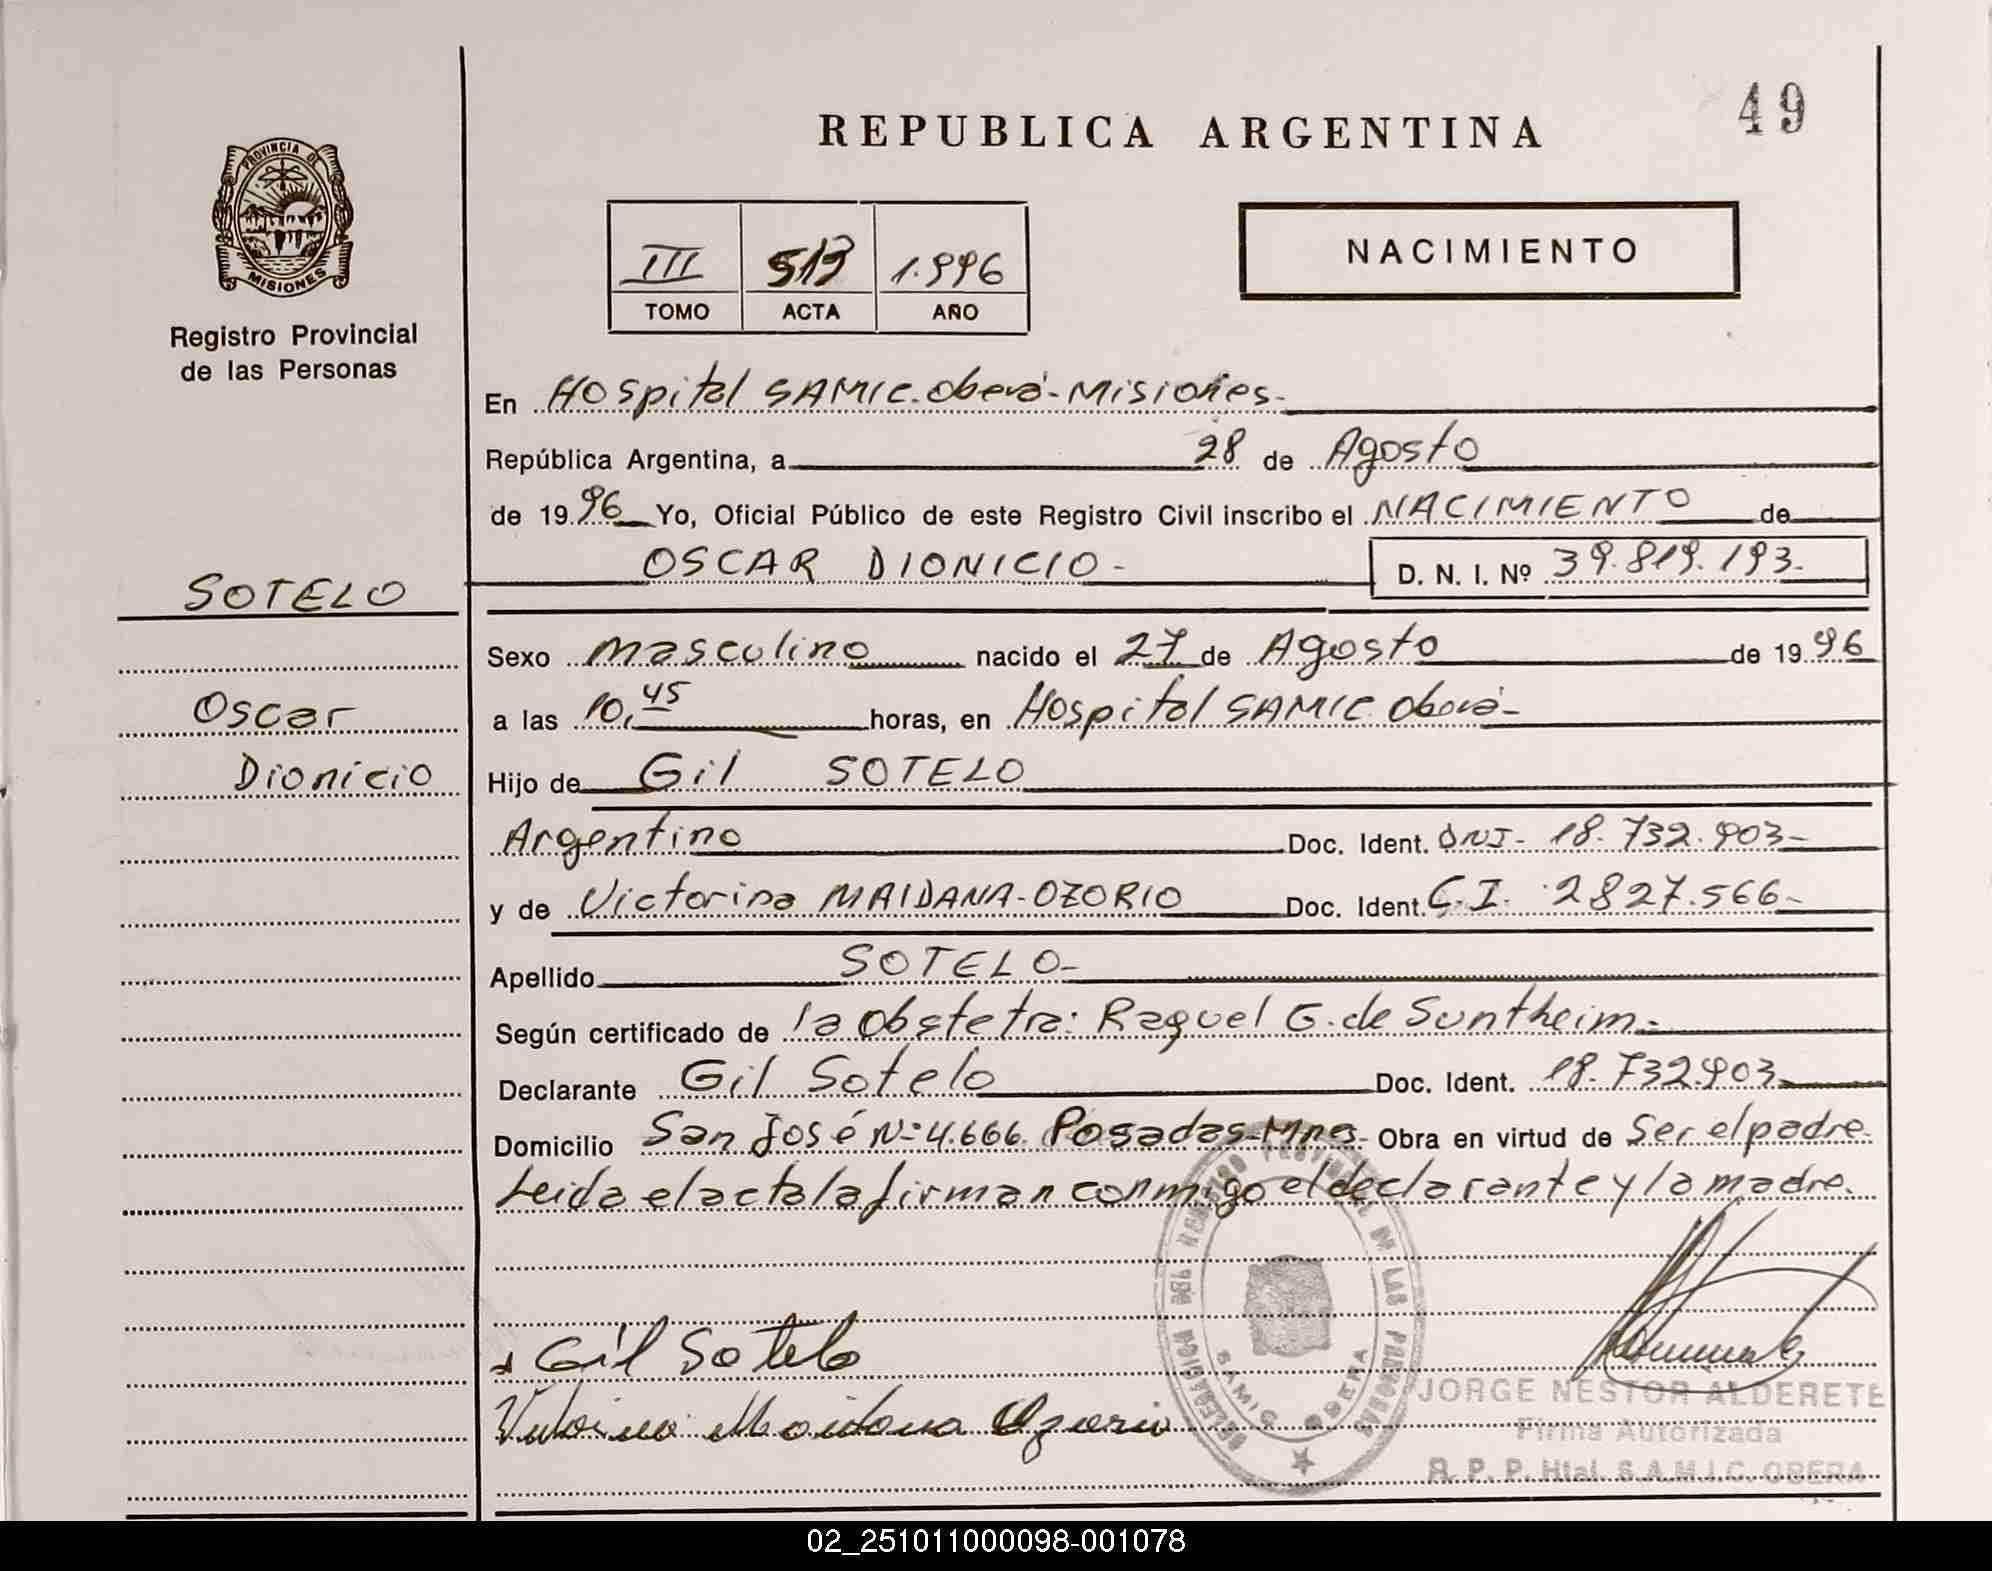 49
REPUBLICA ARGENTINA
PROVINCIA DE
MISIONES
Registro Provincial
de las Personas
III 513 1.996
TOMO ACTA AÑO
NACIMIENTO
En Hospital SAMIC. Oberá - Misiones.
República Argentina, a 28 de Agosto
de 19 96 Yo, Oficial Público de este Registro Civil inscribo el NACIMIENTO de
OSCAR DIONICIO - D. N. I. Nº 39.819.193.
SOTELO
Oscar
Dionicio
Sexo masculino nacido el 27 de Agosto de 19 96
a las 10,45 horas, en Hospital SAMIC. Oberá -
Hijo de Gil SOTELO
Argentino Doc. Ident. DNI - 18.732.903 -
y de Victorina MAIDANA - OZORIO Doc. Ident. C.I. 2827.566 -
Apellido SOTELO -
Según certificado de la obstetra: Raquel G. de Suntheim. -
Declarante Gil Sotelo Doc. Ident. 18.732.903
Domicilio San José Nº 4.666. Posadas - Mnes. Obra en virtud de Ser el padre.
Leida el acta la firman conmigo el declarante y la madre.
Gil Sotelo
Maidana Ozorio
DELEGACION DEL REGISTRO PROVINCIAL DE LAS PERSONAS
SAMIC OBERA
JORGE NESTOR ALDERETE
Firma Autorizada
R. P. P. Htal. S.A.M.I.C. OBERA
02_251011000098-001078